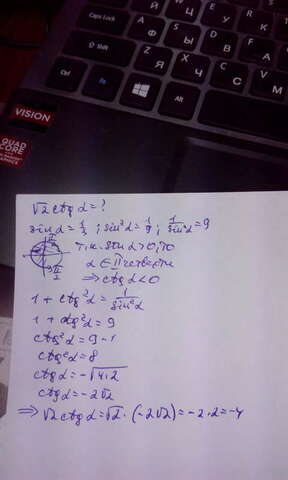 Caps Lock
Shift
Ctrl
Fn
Alt
Й
Ц
У
К
Е
Ф
Ы
В
А
Я
Ч
С
М
VISION
QUAD
CORE
√2 ctg α = ?
sin α = 1/3 ; sin²α = 1/9 ; 1/sin²α = 9
т.к. sin α > 0, то
α ∈ II четверти
⇒ ctg α < 0
1 + ctg²α = 1/sin²α
1 + ctg²α = 9
ctg²α = 9 - 1
ctg²α = 8
ctg α = -√4·2
ctg α = -2√2
⇒ √2 ctg α = √2 · (-2√2) = -2·2 = -4